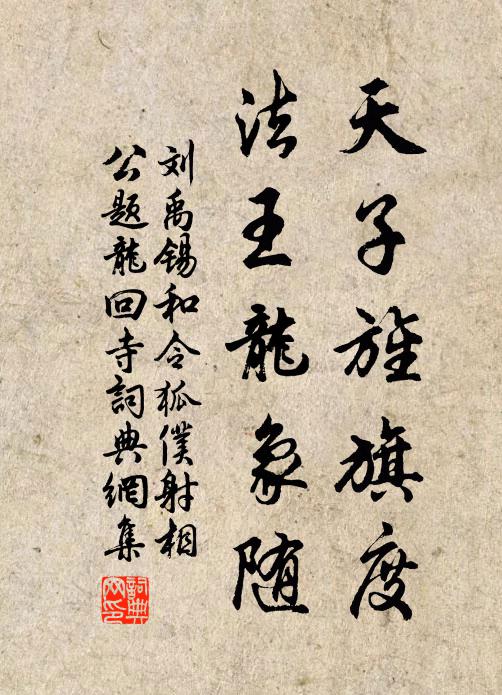 天子旌旗度
法王龍象随
刘禹锡和令狐僕射相
公題龍回寺詞典網集
詞典网印